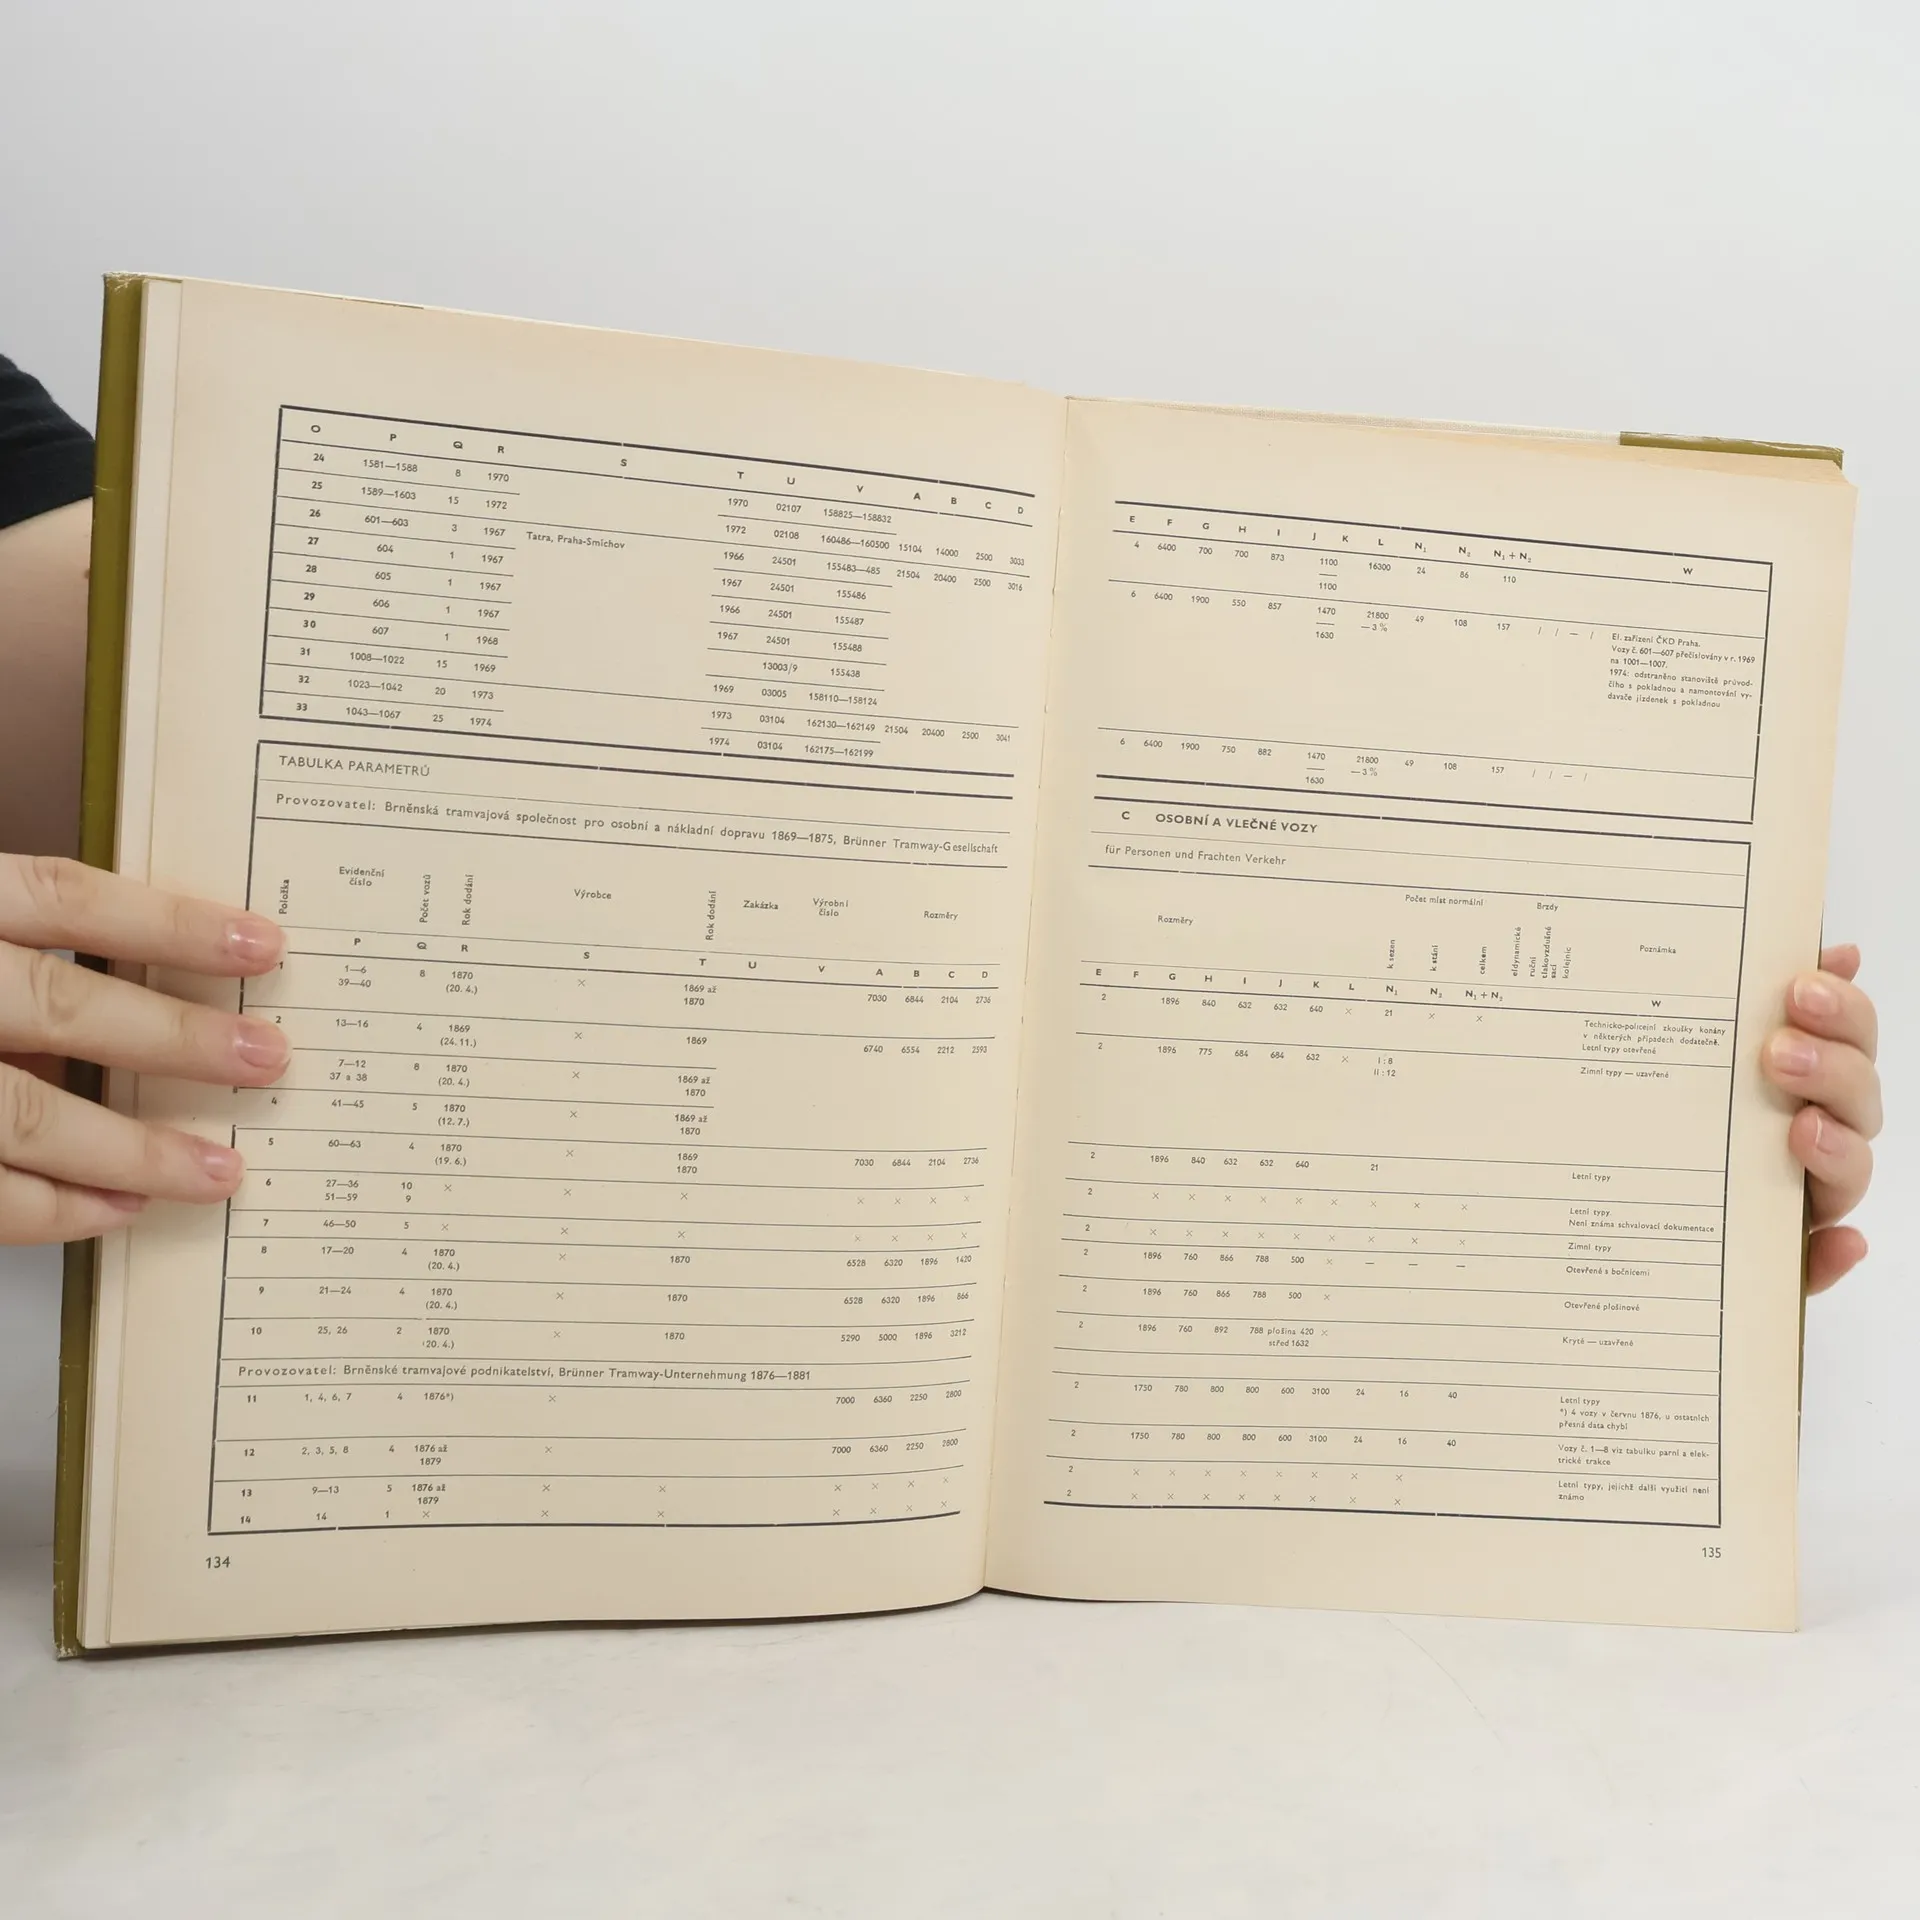 O P Q R S T U V A B C D
24 1581—1588 8 1970 1970 02107 158825—158832
25 1589—1603 15 1972 1972 02108 160486—160500 15104 14000 2500 3033
26 601—603 3 1967 Tatra, Praha-Smíchov 1966 24501 155483—485 21504 20400 2500 3016
27 604 1 1967 1967 24501 155486
28 605 1 1967 1966 24501 155487
29 606 1 1967 1967 24501 155488
30 607 1 1968 13003/9 155438
31 1008—1022 15 1969 1969 03005 158110—158124
32 1023—1042 20 1973 1973 03104 162130—162149 21504 20400 2500 3041
33 1043—1067 25 1974 1974 03104 162175—162199
TABULKA PARAMETRŮ
Provozovatel: Brněnská tramvajová společnost pro osobní a nákladní dopravu 1869—1875, Brünner Tramway-Gesellschaft
Položka Evidenční číslo Počet vozů Rok dodání Výrobce Rok dodání Zakázka Výrobní číslo Rozměry
P Q R S T U V A B C D
1 1—6 8 1870 × 1869 až 7030 6844 2104 2736
39—40 (20. 4.) 1870
2 13—16 4 1869 × 1869 6740 6554 2212 2593
(24. 11.)
7—12 8 1870 × 1869 až
37 a 38 (20. 4.) 1870
4 41—45 5 1870 × 1869 až
(12. 7.) 1870
5 60—63 4 1870 × 1869 7030 6844 2104 2736
(19. 6.) 1870
6 27—36 10 × × × × × × ×
51—59 9
7 46—50 5 × × × × × × ×
8 17—20 4 1870 × 1870 6528 6320 1896 1420
(20. 4.)
9 21—24 4 1870 × 1870 6528 6320 1896 866
(20. 4.)
10 25, 26 2 1870 × 1870 5290 5000 1896 3212
(20. 4.)
Provozovatel: Brněnské tramvajové podnikatelství, Brünner Tramway-Unternehmung 1876—1881
11 1, 4, 6, 7 4 1876*) × 7000 6360 2250 2800
12 2, 3, 5, 8 4 1876 až × 7000 6360 2250 2800
1879
13 9—13 5 1876 až × × × × × ×
1879
14 14 1 × × × × × × ×
134
E F G H I J K L N₁ N₂ N₁ + N₂ W
4 6400 700 700 873 1100 16300 24 86 110
1100
6 6400 1900 550 857 1470 21800 49 108 157 / / — / El. zařízení ČKD Praha.
1630 —3 % Vozy č. 601—607 přečíslovány v r. 1969
na 1001—1007.
1974: odstraněno stanoviště průvod-
čího s pokladnou a namontování vy-
davače jízdenek s pokladnou
6 6400 1900 750 882 1470 21800 49 108 157 / / — /
1630 —3 %
C OSOBNÍ A VLEČNÉ VOZY
für Personen und Frachten Verkehr
Rozměry Počet míst normální Brzdy Poznámka
k sezen k stání celkem eldynamické ruční tlakovzdušné sací kolejnic
E F G H I J K L N₁ N₂ N₁ + N₂ W
2 1896 840 632 632 640 × 21 × × Technicko-policejní zkoušky konány
v některých případech dodatečně.
Letní typy otevřené
2 1896 775 684 684 632 × I : 8 Zimní typy — uzavřené
II : 12
2 1896 840 632 632 640 21 Letní typy
2 × × × × × × × × × Letní typy.
Není známa schvalovací dokumentace
2 × × × × × × × × × Zimní typy
2 1896 760 866 788 500 × — — — Otevřené s bočnicemi
2 1896 760 866 788 500 × Otevřené plošinové
2 1896 760 892 788 plošina 420 × Kryté — uzavřené
střed 1632
2 1750 780 800 800 600 3100 24 16 40 Letní typy
*) 4 vozy v červnu 1876, u ostatních
přesná data chybí
2 1750 780 800 800 600 3100 24 16 40 Vozy č. 1—8 viz tabulku parní a elek-
trické trakce
2 × × × × × × × × Letní typy, jejichž další využití není
známo
2 × × × × × × × ×
135